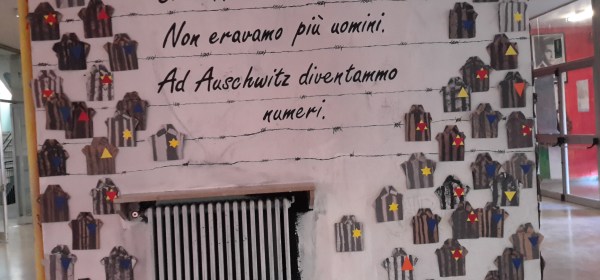 Non eravamo più uomini.
Ad Auschwitz diventammo
numeri.